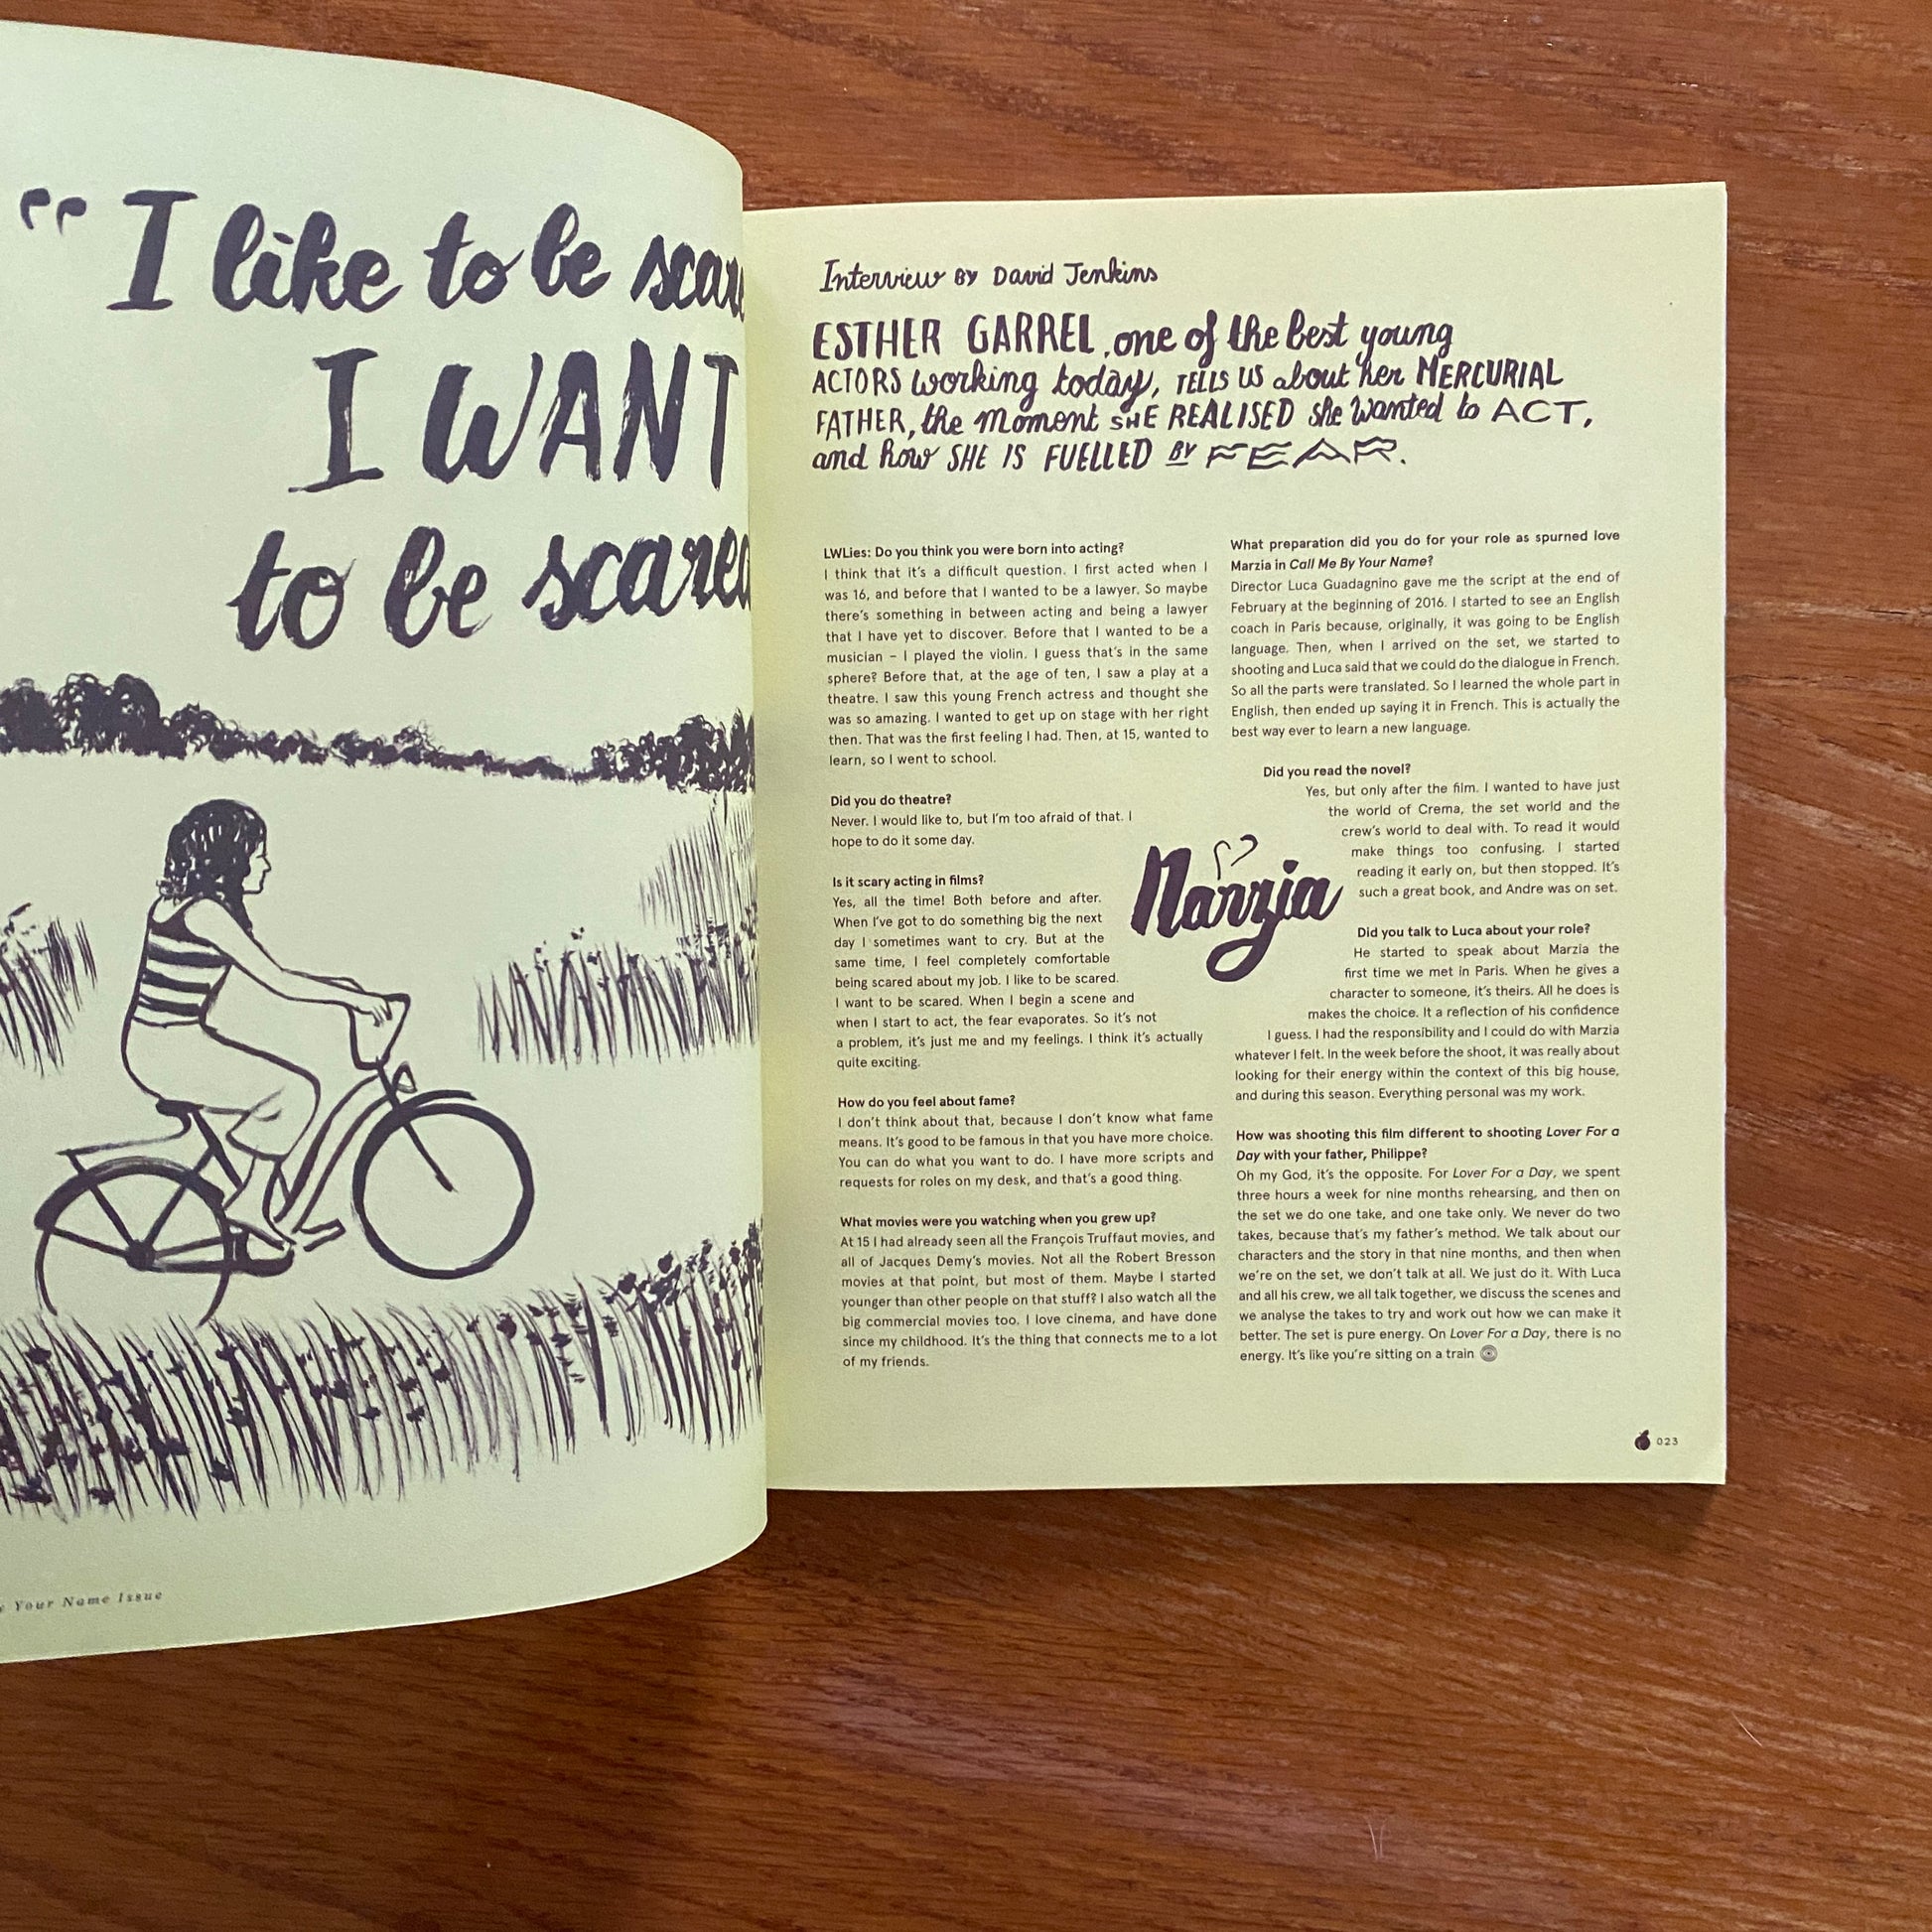 “I like to be
I WANT
to be scared
Your Name Issue
Interview BY David Jenkins
ESTHER GARREL, one of the best young
ACTORS working today, TELLS US about her MERCURIAL
FATHER, the moment SHE REALISED she wanted to ACT,
and how SHE IS FUELLED BY FEAR.
LWLies: Do you think you were born into acting?
I think that it's a difficult question. I first acted when I
was 16, and before that I wanted to be a lawyer. So maybe
there's something in between acting and being a lawyer
that I have yet to discover. Before that I wanted to be a
musician – I played the violin. I guess that's in the same
sphere? Before that, at the age of ten, I saw a play at a
theatre. I saw this young French actress and thought she
was so amazing. I wanted to get up on stage with her right
then. That was the first feeling I had. Then, at 15, wanted to
learn, so I went to school.
Did you do theatre?
Never. I would like to, but I'm too afraid of that. I
hope to do it some day.
Is it scary acting in films?
Yes, all the time! Both before and after.
When I've got to do something big the next
day I sometimes want to cry. But at the
same time, I feel completely comfortable
being scared about my job. I like to be scared.
I want to be scared. When I begin a scene and
when I start to act, the fear evaporates. So it's not
a problem, it's just me and my feelings. I think it's actually
quite exciting.
How do you feel about fame?
I don't think about that, because I don't know what fame
means. It's good to be famous in that you have more choice.
You can do what you want to do. I have more scripts and
requests for roles on my desk, and that's a good thing.
What movies were you watching when you grew up?
At 15 I had already seen all the François Truffaut movies, and
all of Jacques Demy's movies. Not all the Robert Bresson
movies at that point, but most of them. Maybe I started
younger than other people on that stuff? I also watch all the
big commercial movies too. I love cinema, and have done
since my childhood. It's the thing that connects me to a lot
of my friends.
Marzia
What preparation did you do for your role as spurned love
Marzia in Call Me By Your Name?
Director Luca Guadagnino gave me the script at the end of
February at the beginning of 2016. I started to see an English
coach in Paris because, originally, it was going to be English
language. Then, when I arrived on the set, we started to
shooting and Luca said that we could do the dialogue in French.
So all the parts were translated. So I learned the whole part in
English, then ended up saying it in French. This is actually the
best way ever to learn a new language.
Did you read the novel?
Yes, but only after the film. I wanted to have just
the world of Crema, the set world and the
crew's world to deal with. To read it would
make things too confusing. I started
reading it early on, but then stopped. It's
such a great book, and Andre was on set.
Did you talk to Luca about your role?
He started to speak about Marzia the
first time we met in Paris. When he gives a
character to someone, it's theirs. All he does is
makes the choice. It a reflection of his confidence
I guess. I had the responsibility and I could do with Marzia
whatever I felt. In the week before the shoot, it was really about
looking for their energy within the context of this big house,
and during this season. Everything personal was my work.
How was shooting this film different to shooting Lover For a
Day with your father, Philippe?
Oh my God, it's the opposite. For Lover For a Day, we spent
three hours a week for nine months rehearsing, and then on
the set we do one take, and one take only. We never do two
takes, because that's my father's method. We talk about our
characters and the story in that nine months, and then when
we're on the set, we don't talk at all. We just do it. With Luca
and all his crew, we all talk together, we discuss the scenes and
we analyse the takes to try and work out how we can make it
better. The set is pure energy. On Lover For a Day, there is no
energy. It's like you're sitting on a train
023